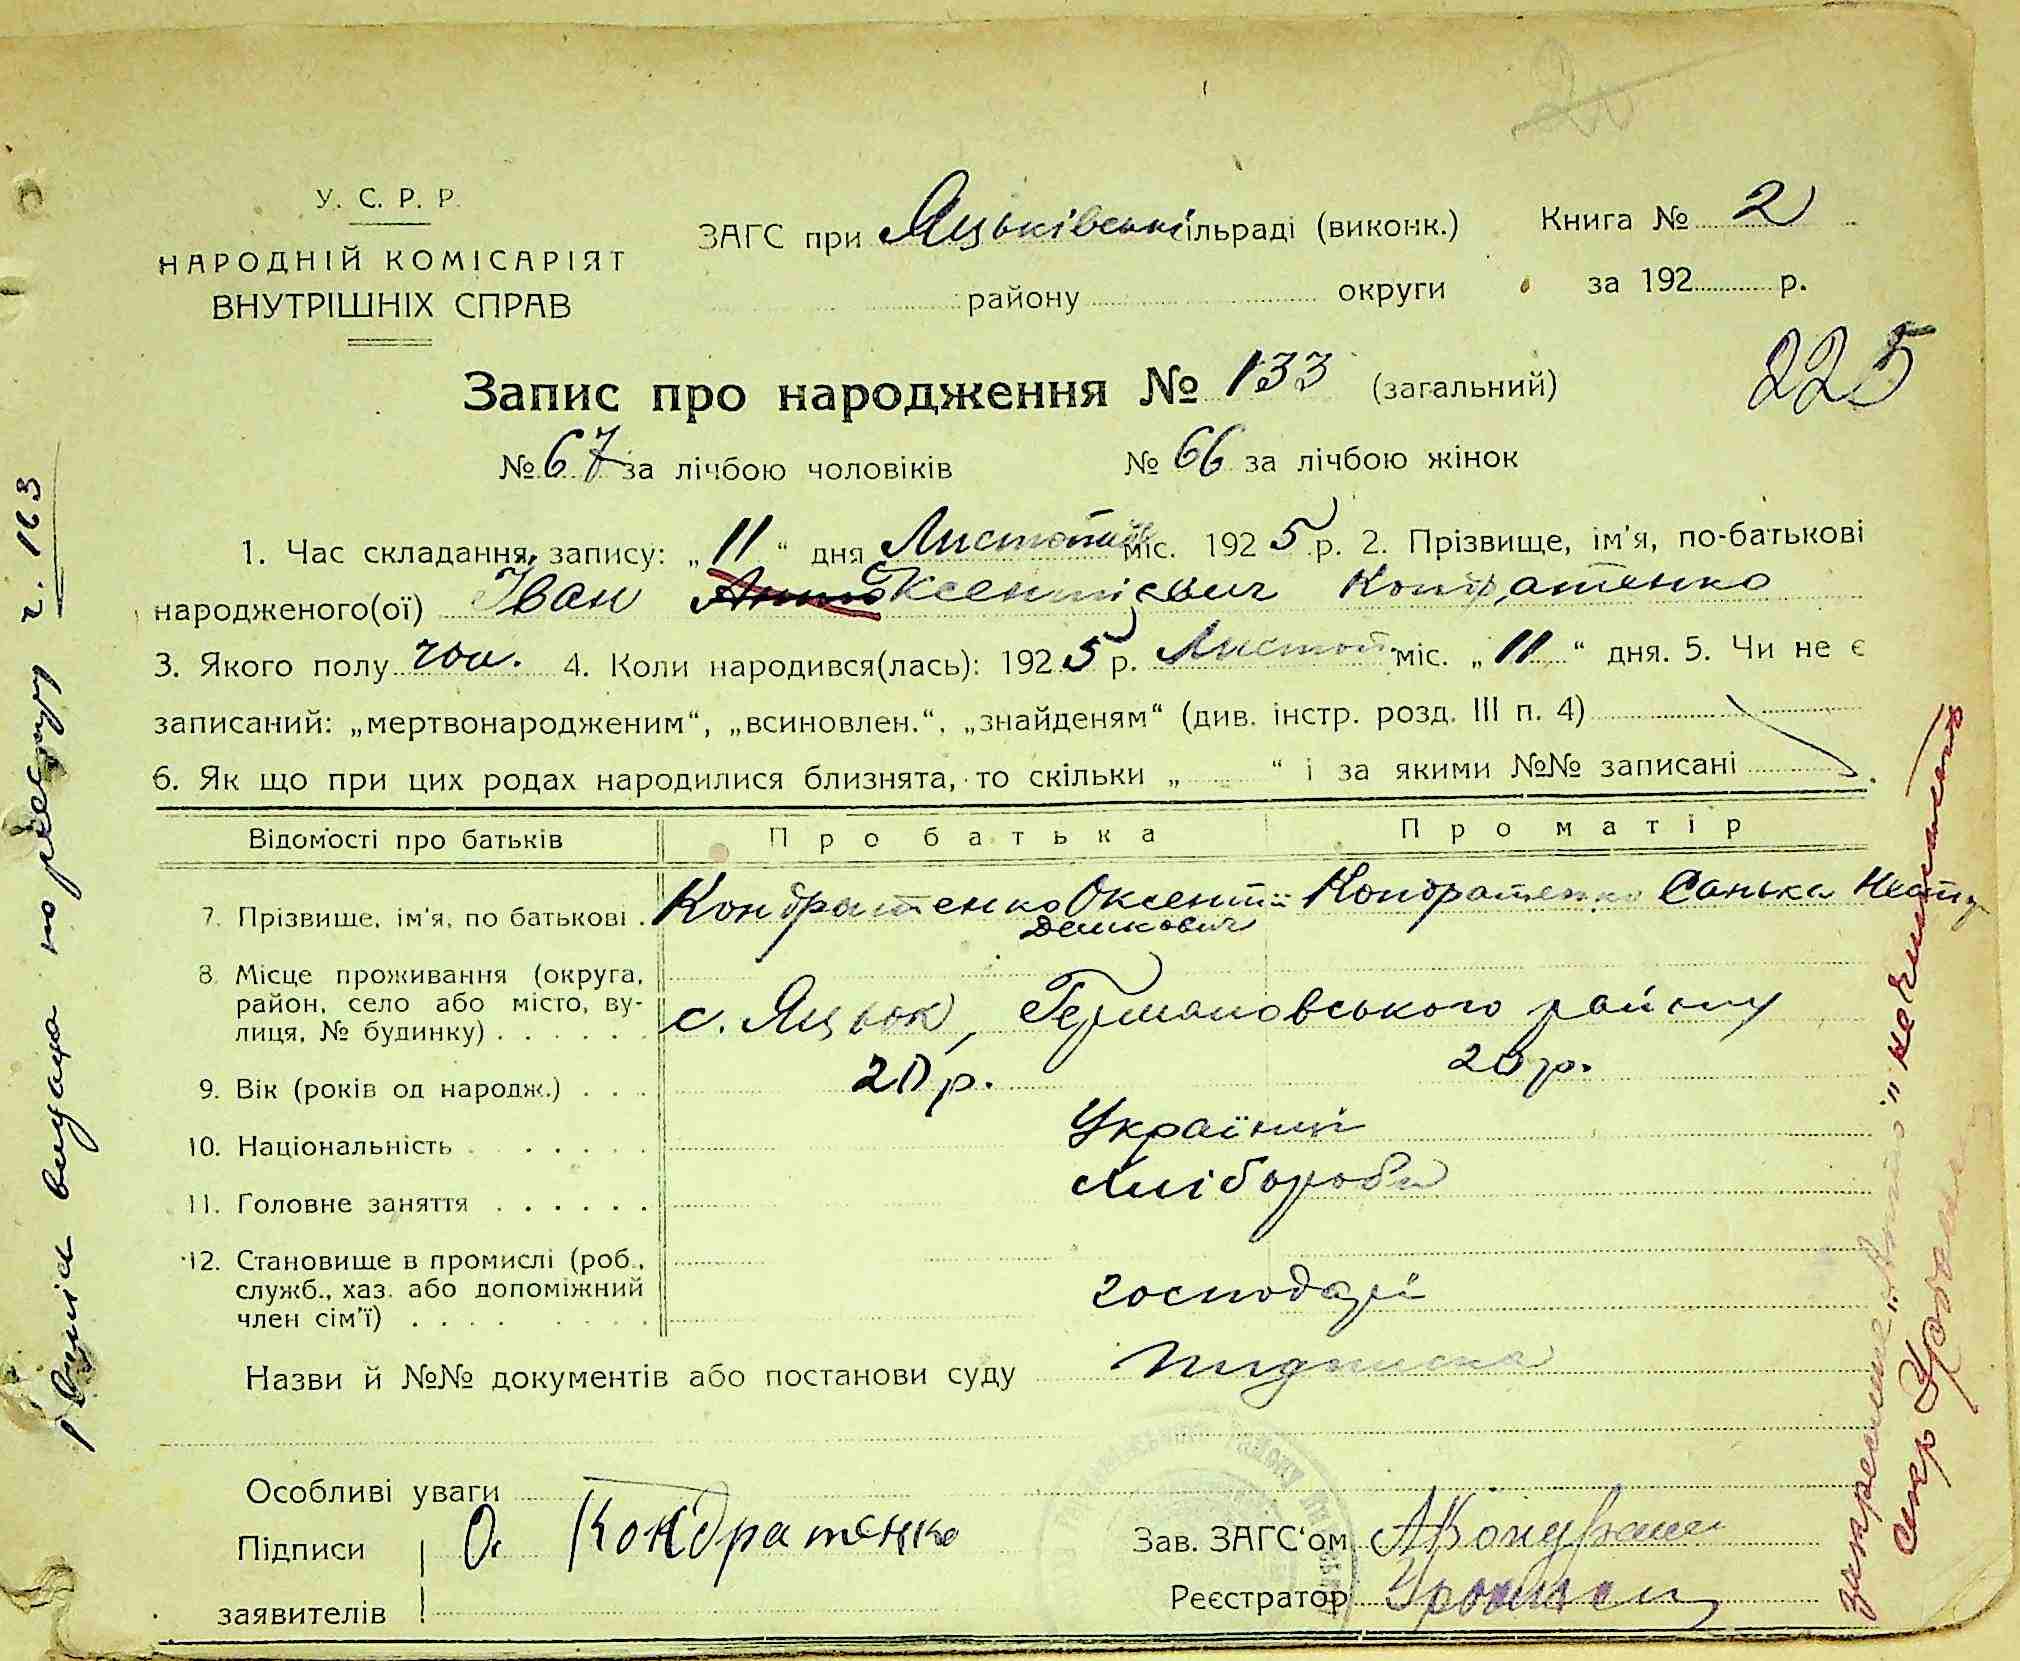 У. С. Р. Р.
НАРОДНІЙ КОМІСАРІЯТ
ВНУТРІШНІХ СПРАВ
ЗАГС при Яцьківськ сільраді (виконк.) Книга № 2
району округи за 192 р.
225
Запис про народження № 133 (загальний)
№ 67 за лічбою чоловіків № 66 за лічбою жінок
1. Час складання запису: „11“ дня Листопад міс. 1925 р. 2. Прізвище, ім'я, по-батькові
народженого(ої) Іван Оксентієвич Кондратенко
3. Якого полу чол. 4. Коли народився(лась): 1925 р. Листоп. міс. „11“ дня. 5. Чи не є
записаний: „мертвонародженим“, „всиновлен.“, „знайденям“ (див. інстр. розд. III п. 4)
6. Як що при цих родах народилися близнята, то скільки „ “ і за якими №№ записані
Відомості про батьків Про батька Про матір
7. Прізвище, ім'я, по батькові . Кондратенко Оксентій Кондратенко Санька
8. Місце проживання (округа,
район, село або місто, ву-
лиця, № будинку) . . . . . . с. Яцьок, Германовського району
9. Вік (років од народж.) . . . 20 р. 20 р.
10. Національність . . . . . . Українці
11. Головне заняття . . . . . . Хлібороби
12. Становище в промислі (роб.,
служб., хаз. або допоміжний
член сім'ї) . . . . господарі
Назви й №№ документів або постанови суду Підписка
Особливі уваги
Підписи О. Кондратенко Зав. ЗАГС'ом
заявителів Реєстратор
Витяг видано по реєстру ч. 163
закреслене „Анто“ не читать